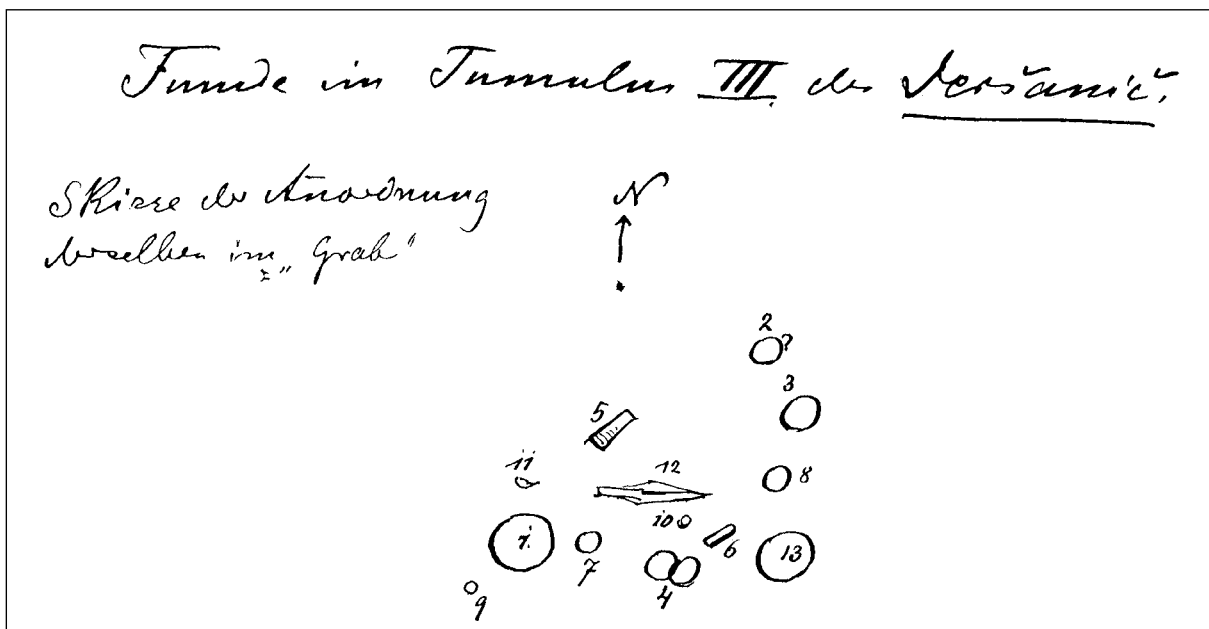 Funde im Tumulus III. des
Skizze der Anordnung
derselben im „Grab“
N
2
?
3
5
11
12
8
10
1.
7
6
13
4
9